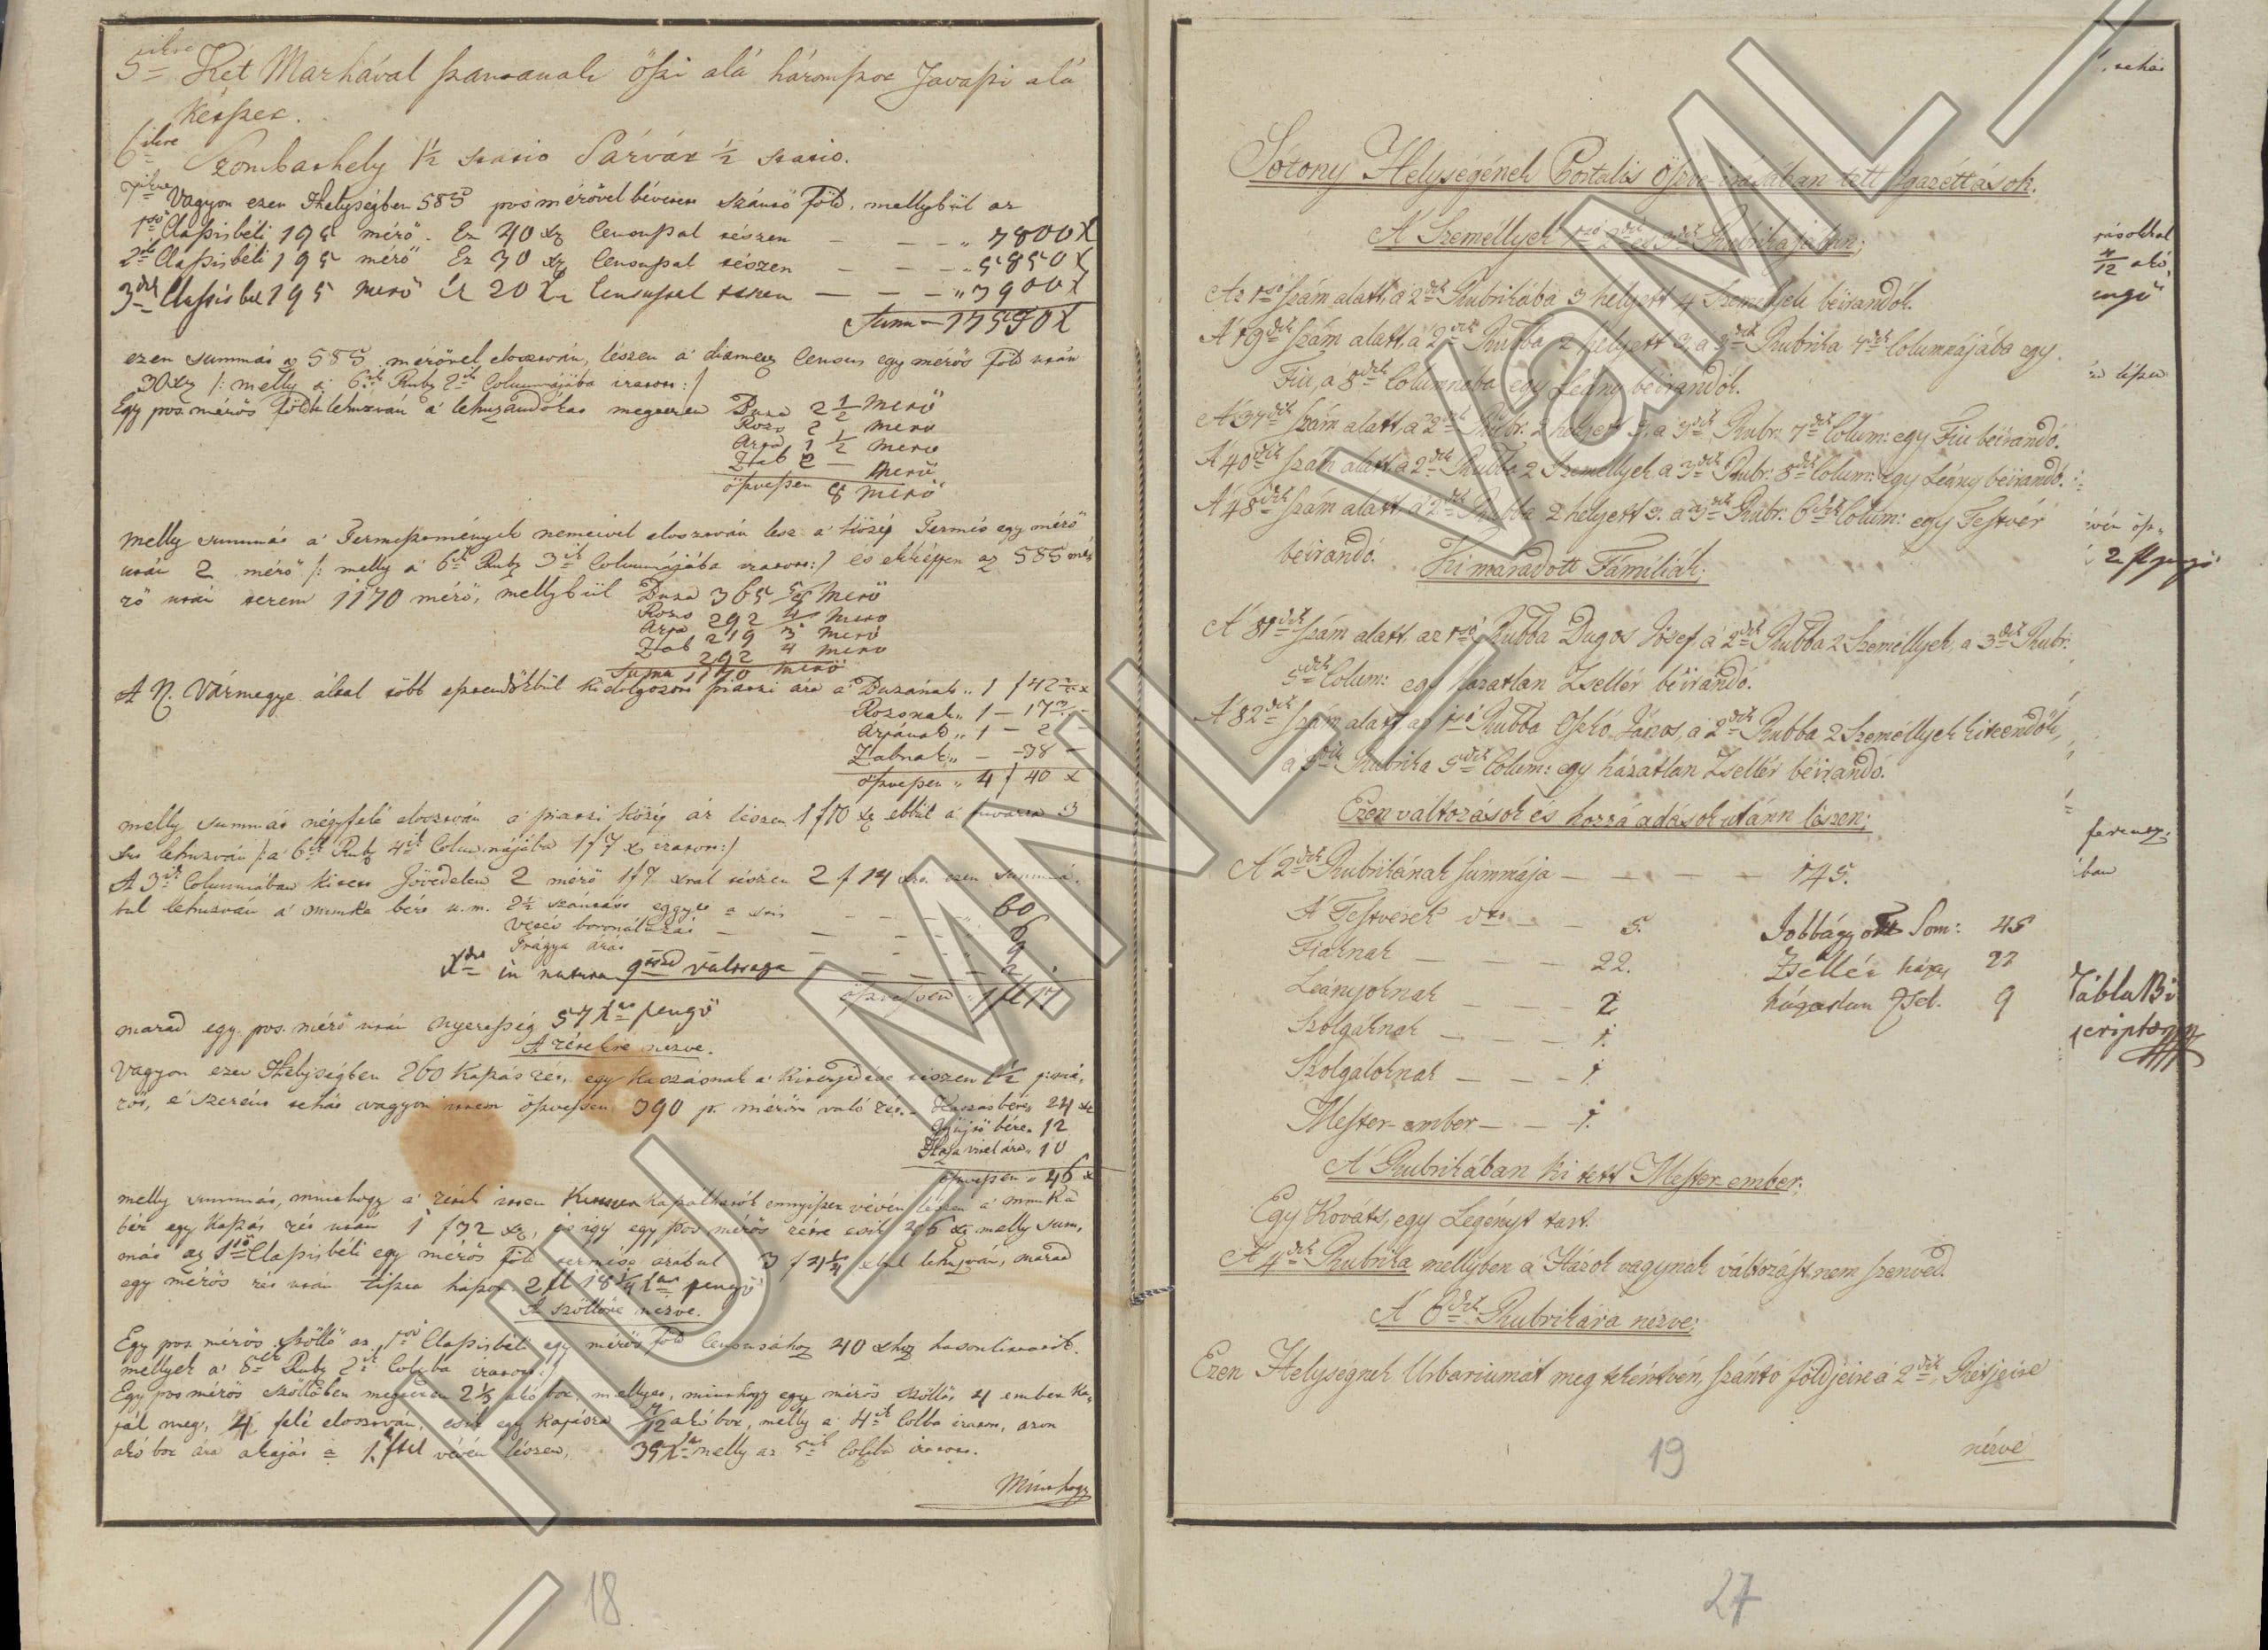 5ikre Két Marhával szantanak öszi alá háromszor Javaszi alá
Kétszer.
6ikre Szombathely 1½ statio Sárvár ½ statio.
7ikre Vagyon ezen Helységben 585 pos mérővel bévetett Szántó Föld, mellybül az
1ső Classisbéli 195 mérő. Ez 40 xr Censussal tészen — — — „ 7800 X
2ik Classisbéli 195 mérő Ez 30 xr Censussal tészen — — — „ 5850 X
3dik Classisbéli 195 merő Ez 20 Xr Censussal teszen — — — „ 3900 X
Summa — 17550 X
ezen summát az 585 mérővel elosztván, lészen a' diameg Census egy mérős Föld után
30 xr /: melly a' 6ik Rub 2ik Columnájába iratott :/
Egy pos. mérős földbe lehuzván a' lehuzandókat megterem Buza 2½ Merő
Rozs 2 merő
Arpa 1½ merő
Zab 2 — Merő
öszvessen 8 Merő
melly summát a' Termesztmények nemeivel elosztván lesz a' közép Termés egy mérő
után 2 mérő /: melly a' 6ik Rub 3ik Columnájába iratott :/ és ekképpen az 585 mé
rő után terem 1170 mérő, mellybül Buza 365 5/8 Merő
Rozs 292 4 Merő
Arpa 219 3 Merő
Zab 292 4 Merő
Suma 1170 Merő
A N. Vármegye által több esztendőkbül kidolgozott piatzi ára a' Buzának „ 1 f 42 x
Rozsnak „ 1 — 17
Arpának „ 1 — 2 —
Zabnak „ — — 38 —
öszvessen „ 4 f 40 x
melly summát négyfelé elosztván a' piatzi közép ár lészen 1 f 10 xr ebbül a' fuvarra 3
xrt lehuzván /: a' 6ik Rub 4ik Columnájába 1 f 7 x iratott :/
A 3ik Columnában kitett Jövedelem 2 mérő 1 f 7 xral tészen 2 f 14 xrt. ezen summá,
bul lehuzván a' munka bért u.m. 2½ szántást eggyet — — — „ 60
Vetés boronálását — — — — „ 6
Trágya árát — — — — „ 9
in natura 9ced valtsaga — — — 2
öszvessen „ 1 f 17
marad egy pos. mérő után nyeresség 57 Xr pengő
A rétekre nezve.
Vagyon ezen Helységben 260 Kapás rét, egy kaszásnak a' kiterjedése teszen 1½ pmé,
rőt, e' szerént tehát vagyon öszvessen 390 p. mérőre való rét. Kaszás bére „ 24 xr
Gyüjtő bére „ 12
Haza vitel ára „ 10
öszvessen „ 46 x
melly summát, minthogy a' rétek
bér egy Kapás rét után 1 f 32 xr, és igy egy pos mérős rétre esik xr melly sum,
mát az 1ső Classisbéli egy mérős Föld termése árábul 3 f xbul lehuzván, marad
egy mérős rét után tiszta haszon 2 f 18¾ Xr pengő
A szöllőre nézve.
Egy pos mérős szöllő az 1ső Classisbéli egy mérős föld Censusához 40 xhoz hasonlittatik.
mellyek a' 8ik Rub 2ik Colba iratott :/
Egy pos mérős szöllőben megterem 2⅓ akó bor, mellyet, minthogy egy mérős szöllőt 4 ember ka,
pál meg, 4 felé elosztván, esik egy kapásra 7/12 akó bor, melly a' 4ik Colba iratott, azon
akó bor ára akóját a 1 ftul vévén lészen, 35 Xr melly az 5ik Colba iratott.
Minthogy
18.
Sótony Helységének Portalis öszve irásában tett Igazéttások.
A' Személlyek 1ső 2dik és 3dik Rubrikájában;
Az 1ső Szám alatt, a 2dik Rubrikába 3 helyett 4 Személyek béirandók.
A' 19dik Szám alatt, a 2dik Rubba 2 helyett 3, a 3dik Rubrika 7dik Columnájába egy
Fiu, a 8dik Columnába egy Leány béirandók.
A' 37dik Szám alatt, a 2dik Rubr. 2 helyett 3, a 3dik Rubr: 7dik Colum: egy Fiu béirandó.
A' 40dik Szám alatt, a 2dik Rubba 2 Személlyek a 3dik Rubr: 8dik Colum: egy Leány béirandó.
A' 48dik Szám alatt, a 2dik Rubba 2 helyett 3. a 3dik Rubr: 6dik Colum: egy Testvér
béirandó.
Ki maradott Fámiliák;
A' 81dik Szám alatt az 1ső Rubba Dugos Josef, a 2dik Rubba 2 Személlyek, a 3dik Rubr:
5dik Colum: egy hazatlan Zsellér béirandó.
A' 82dik Szám alatt, az 1ső Rubba Oszkó János, a 2dik Rubba 2 Személlyek kiteendők,
a 3dik Rubrika 5dik Colum: egy házatlan Zsellér béirandó.
Ezen változások és hozzá adások utánn lészen;
A' 2dik Rubrikának Summája — — — — — 145.
A' Testvérek — — 5. Jobbágyok Som: 45
Fiaknak — — — 22. Zsellér házas 27
Leányoknak — — — 2 házatlan Zsel. 9
Szolgáknak — — — 1.
Szolgaloknak — — — 1.
Mester-ember — — 1.
A' Rubrikában ki tett Mester ember;
Egy Kováts, egy Legényt tart.
A' 4dik Rubrika mellyben a' Házok vagynak változást nem szenved.
A' 6dik Rubrikára nézve;
Ezen Helységnek Urbariumát meg tekéntvén, szántó földjeire a 2dik, Rétjeire
nézve
19
27
, tehát
12 akó,
pengő
2 f pengő
ferencz
iban
Tábla Bi
HU MNL VaML